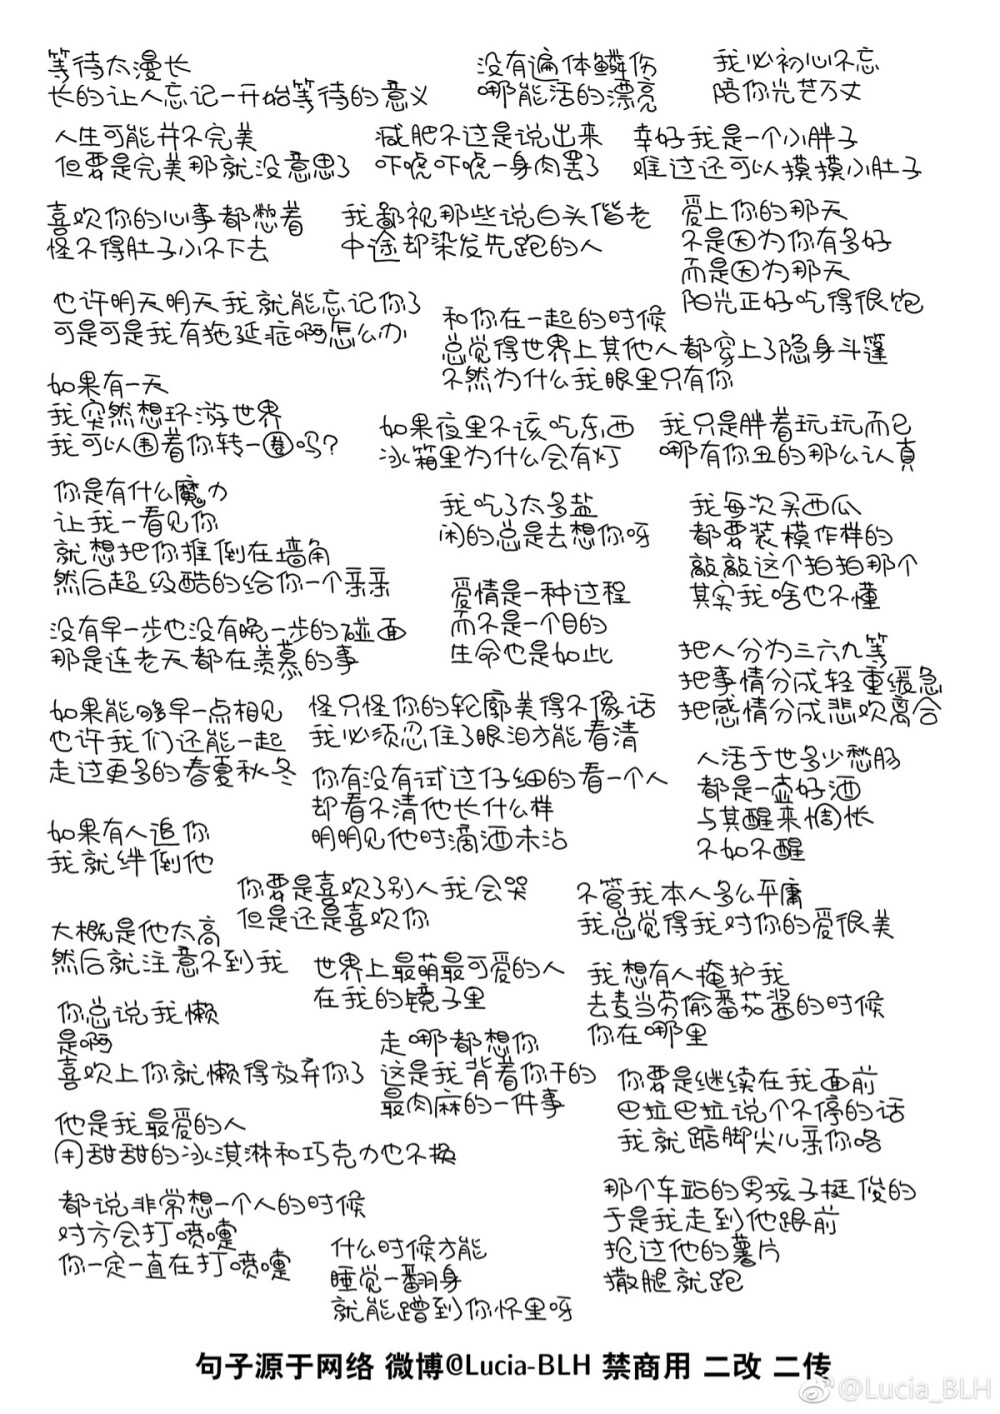 等待太漫长
长的让人忘记一开始等待的意义
没有遍体鳞伤
哪能活的漂亮
我必初心不忘
陪你光芒万丈
人生可能并不完美
但要是完美那就没意思了
减肥不过是说出来
吓唬吓唬一身肉罢了
幸好我是一个小胖子
难过还可以摸摸小肚子
喜欢你的心事都憋着
怪不得肚子小不下去
我鄙视那些说白头偕老
中途却染发先跑的人
爱上你的那天
不是因为你有多好
而是因为那天
阳光正好吃得很饱
也许明天明天我就能忘记你了
可是可是我有拖延症啊怎么办
和你在一起的时候
总觉得世界上其他人都穿上了隐身斗篷
不然为什么我眼里只有你
如果有一天
我突然想环游世界
我可以围着你转一圈吗?
如果夜里不该吃东西
冰箱里为什么会有灯
我只是胖着玩玩而已
哪有你丑的那么认真
你是有什么魔力
让我一看见你
就想把你推倒在墙角
然后超级酷的给你一个亲亲
我吃了太多盐
闲的总是去想你呀
我每次买西瓜
都要装模作样的
敲敲这个拍拍那个
其实我啥也不懂
爱情是一种过程
而不是一个目的
生命也是如此
没有早一步也没有晚一步的碰面
那是连老天都在羡慕的事
把人分为三六九等
把事情分成轻重缓急
把感情分成悲欢离合
如果能够早一点相见
也许我们还能一起
走过更多的春夏秋冬
怪只怪你的轮廓美得不像话
我必须忍住了眼泪才能看清
你有没有试过仔细的看一个人
却看不清他长什么样
明明见他时滴酒未沾
人活于世多少愁肠
都是一壶好酒
与其醒来惆怅
不如不醒
如果有人追你
我就绊倒他
你要是喜欢了别人我会哭
但是还是喜欢你
不管我本人多么平庸
我总觉得我对你的爱很美
大概是他太高
然后就注意不到我
世界上最萌最可爱的人
在我的镜子里
我想有人掩护我
去麦当劳偷番茄酱的时候
你在哪里
你总说我懒
是啊
喜欢上你就懒得放弃你了
走哪都想你
这是我背着你干的
最肉麻的一件事
你要是继续在我面前
巴拉巴拉说个不停的话
我就踮脚尖儿亲你咯
他是我最爱的人
用甜甜的冰淇淋和巧克力也不换
都说非常想一个人的时候
对方会打喷嚏
你一定一直在打喷嚏
什么时候才能
睡觉一翻身
就能蹭到你怀里呀
那个车站的男孩子挺俊的
于是我走到他跟前
抢过他的薯片
撒腿就跑
句子源于网络 微博@Lucia-BLH 禁商用 二改 二传
@Lucia_BLH